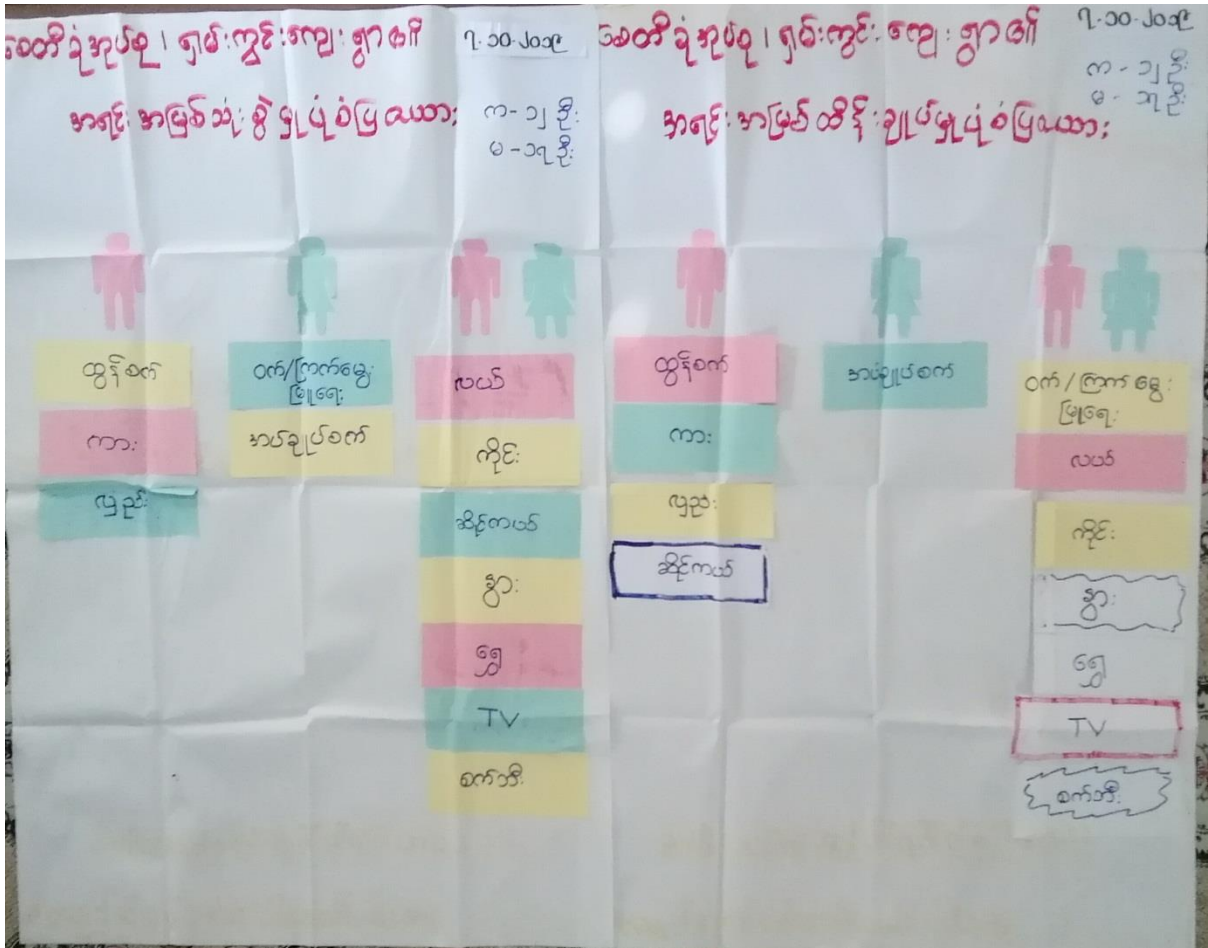 စေတီခုံအုပ်စု၊ ရှမ်းကွင်းကျေးရွာ၏
၇.၁၀.၂၀၁၉
အရင်းအမြစ်သုံးစွဲမှုပုံစံပြဇယား
က - ၁၂ ဦး
မ - ၁၇ ဦး
ထွန်စက်
ကား
လှည်း
ဝက်/ကြက်မွေး
မြူရေး
အပ်ချုပ်စက်
လယ်
ကိုင်း
ဆိုင်ကယ်
နွား
ရွှေ
TV
စက်ဘီး
စေတီခုံအုပ်စု၊ ရှမ်းကွင်းကျေးရွာ၏
၇.၁၀.၂၀၁၉
အရင်းအမြစ်ထိန်းချုပ်မှုပုံစံပြဇယား
က - ၁၂ ဦး
မ - ၁၇ ဦး
ထွန်စက်
ကား
လှည်း
ဆိုင်ကယ်
အပ်ချုပ်စက်
ဝက်/ကြက်မွေး
မြူရေး
လယ်
ကိုင်း
နွား
ရွှေ
TV
စက်ဘီး